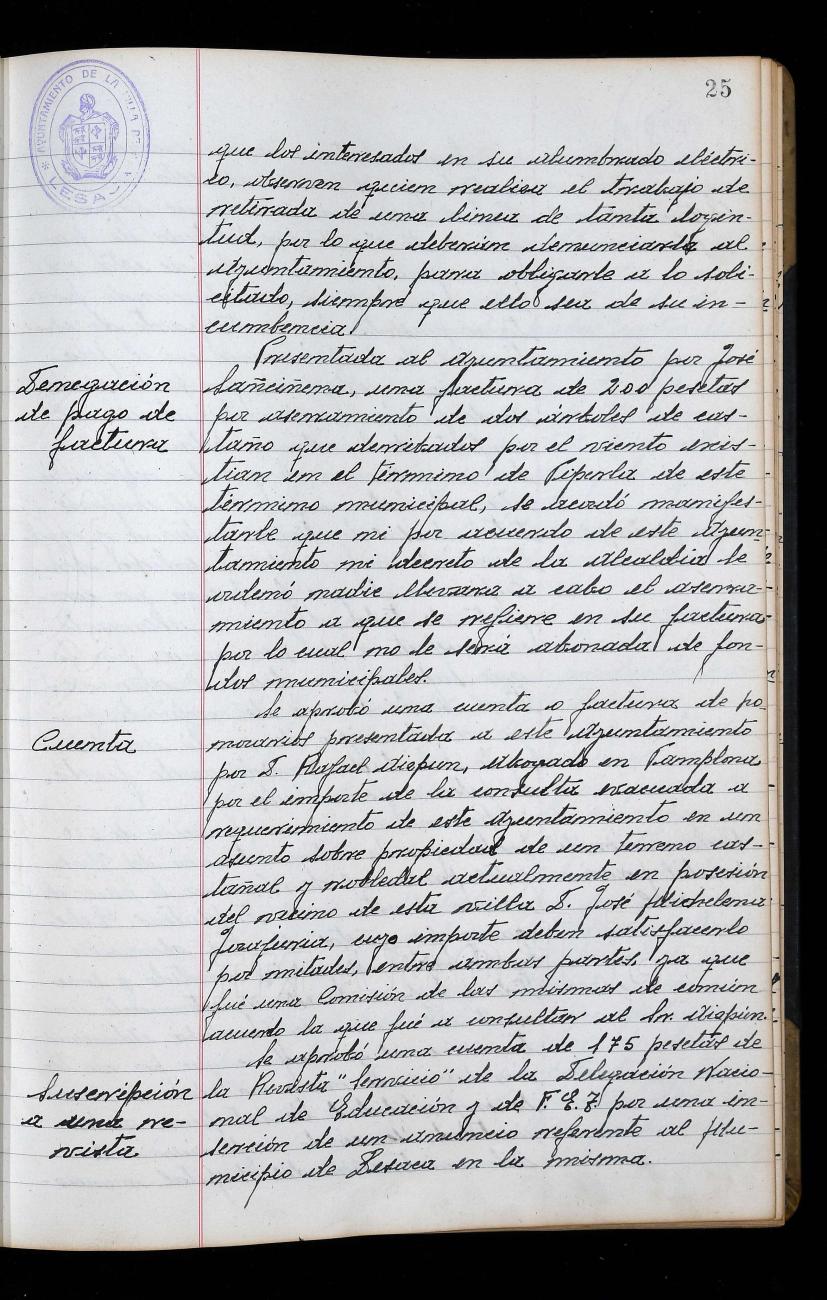 25
AYUNTAMIENTO DE LA VILLA DE
LESACA
que los interesados en su alumbrado eléctri-
co, observen quien realiza el trabajo de
retirada de una linea de tanta login-
tud, por lo que deberán denunciarla al
Ayuntamiento, para obligarle a lo soli-
citado, siempre que ello sea de su in-
cumbencia.
Denegación
de pago de
factura
Presentada al Ayuntamiento por José
Lanciñena, una factura de 200 pesetas
por aserramiento de dos árboles de cas-
taño que derribados por el viento exis-
tian en el término de Piperla de este
término municipal, se acordó manifes-
tarle que ni por acuerdo de este Ayun-
tamiento ni decreto de la Alcaldia le
ordenó nadie llevara a cabo el aserra-
miento a que se refiere en su factura
por lo cual no le será abonada de fon-
dos municipales.
Cuenta
Se aprobó una cuenta o factura de ho
norarios presentada a este Ayuntamiento
por D. Rafael Aizpun, Abogado en Pamplona
por el importe de la consulta evacuada a
requerimiento de este Ayuntamiento en un
asunto sobre propiedad de un terreno cas-
tañal y robledal actualmente en posesión
del vecino de esta villa D. José Michelena
cuyo importe deben satisfacerlo
por mitades, entre ambas partes, ya que
fué una Comisión de las mismas de común
acuerdo la que fué a consultar al Sr. Aizpún.
Suscripción
a una re-
vista
Se aprobó una cuenta de 175 pesetas de
la Revista "Servicio" de la Delegación Nacio-
nal de Educación y de F. E. T. por una in-
serción de un anuncio referente al Mu-
nicipio de Lesaca en la misma.